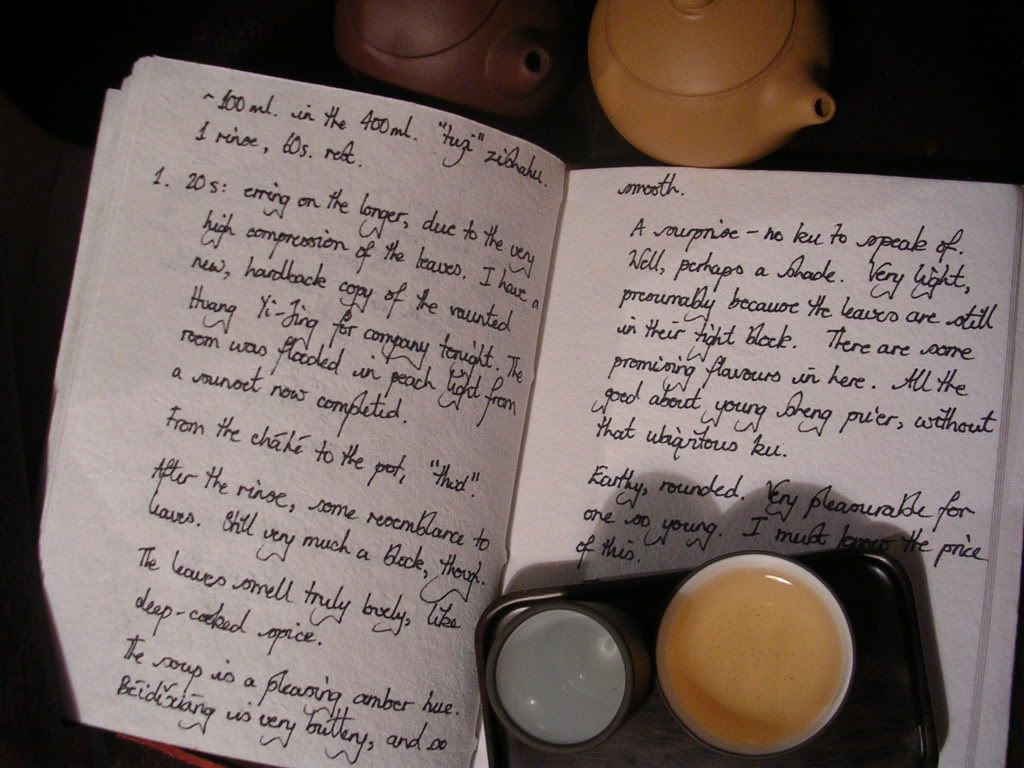 ~100ml. in the 400ml. "tuzi" zishahu.
1 rinse, 60s. rest.
1. 20s: erring on the longer, due to the very
high compression of the leaves. I have a
new, hardback copy of the vaunted
Huang Yi-Jing for company tonight. The
room was flooded in peach light from
a sunset now completed.
From the cháhé to the pot, "thud".
After the rinse, some resemblance to
leaves. Still very much a block, though.
The leaves smell truly lovely, like
deep-cooked spice.
The soup is a pleasing amber hue.
Bēidǐxiāng is very buttery, and so
smooth.
A surprise - no ku to speak of.
Well, perhaps a shade. Very light,
presumably because the leaves are still
in their tight block. There are some
promising flavours in here. All the
good about young sheng pu'er, without
that ubiqitous ku.
Earthy, rounded. Very pleasurable for
one so young. I must know the price
of this.